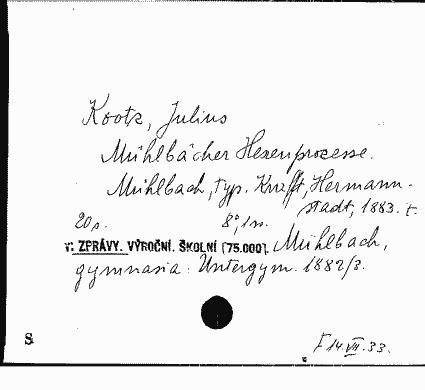 Kootz, Julius
Mühlbächer Hexenprozesse.
Mühlbach, Typ. Krafft, Hermann-
stadt, 1883. t.
20 s. 8°, 1 sv.
v: ZPRÁVY. VÝROČNÍ. ŠKOLNÍ [75.000]. Mühlbach,
gymnasia: Untergym. 1882/3.
S
F 14.VII.33.